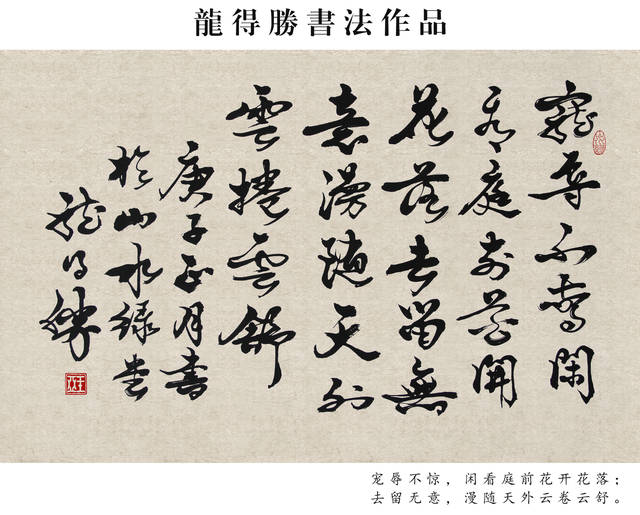 龍得勝書法作品
寵辱不驚閑
看庭前花開
花落去留無
意漫随天外
雲捲雲舒
庚子正月書
於山水緑堂
龍得勝
宠辱不惊，闲看庭前花开花落；
去留无意，漫随天外云卷云舒。